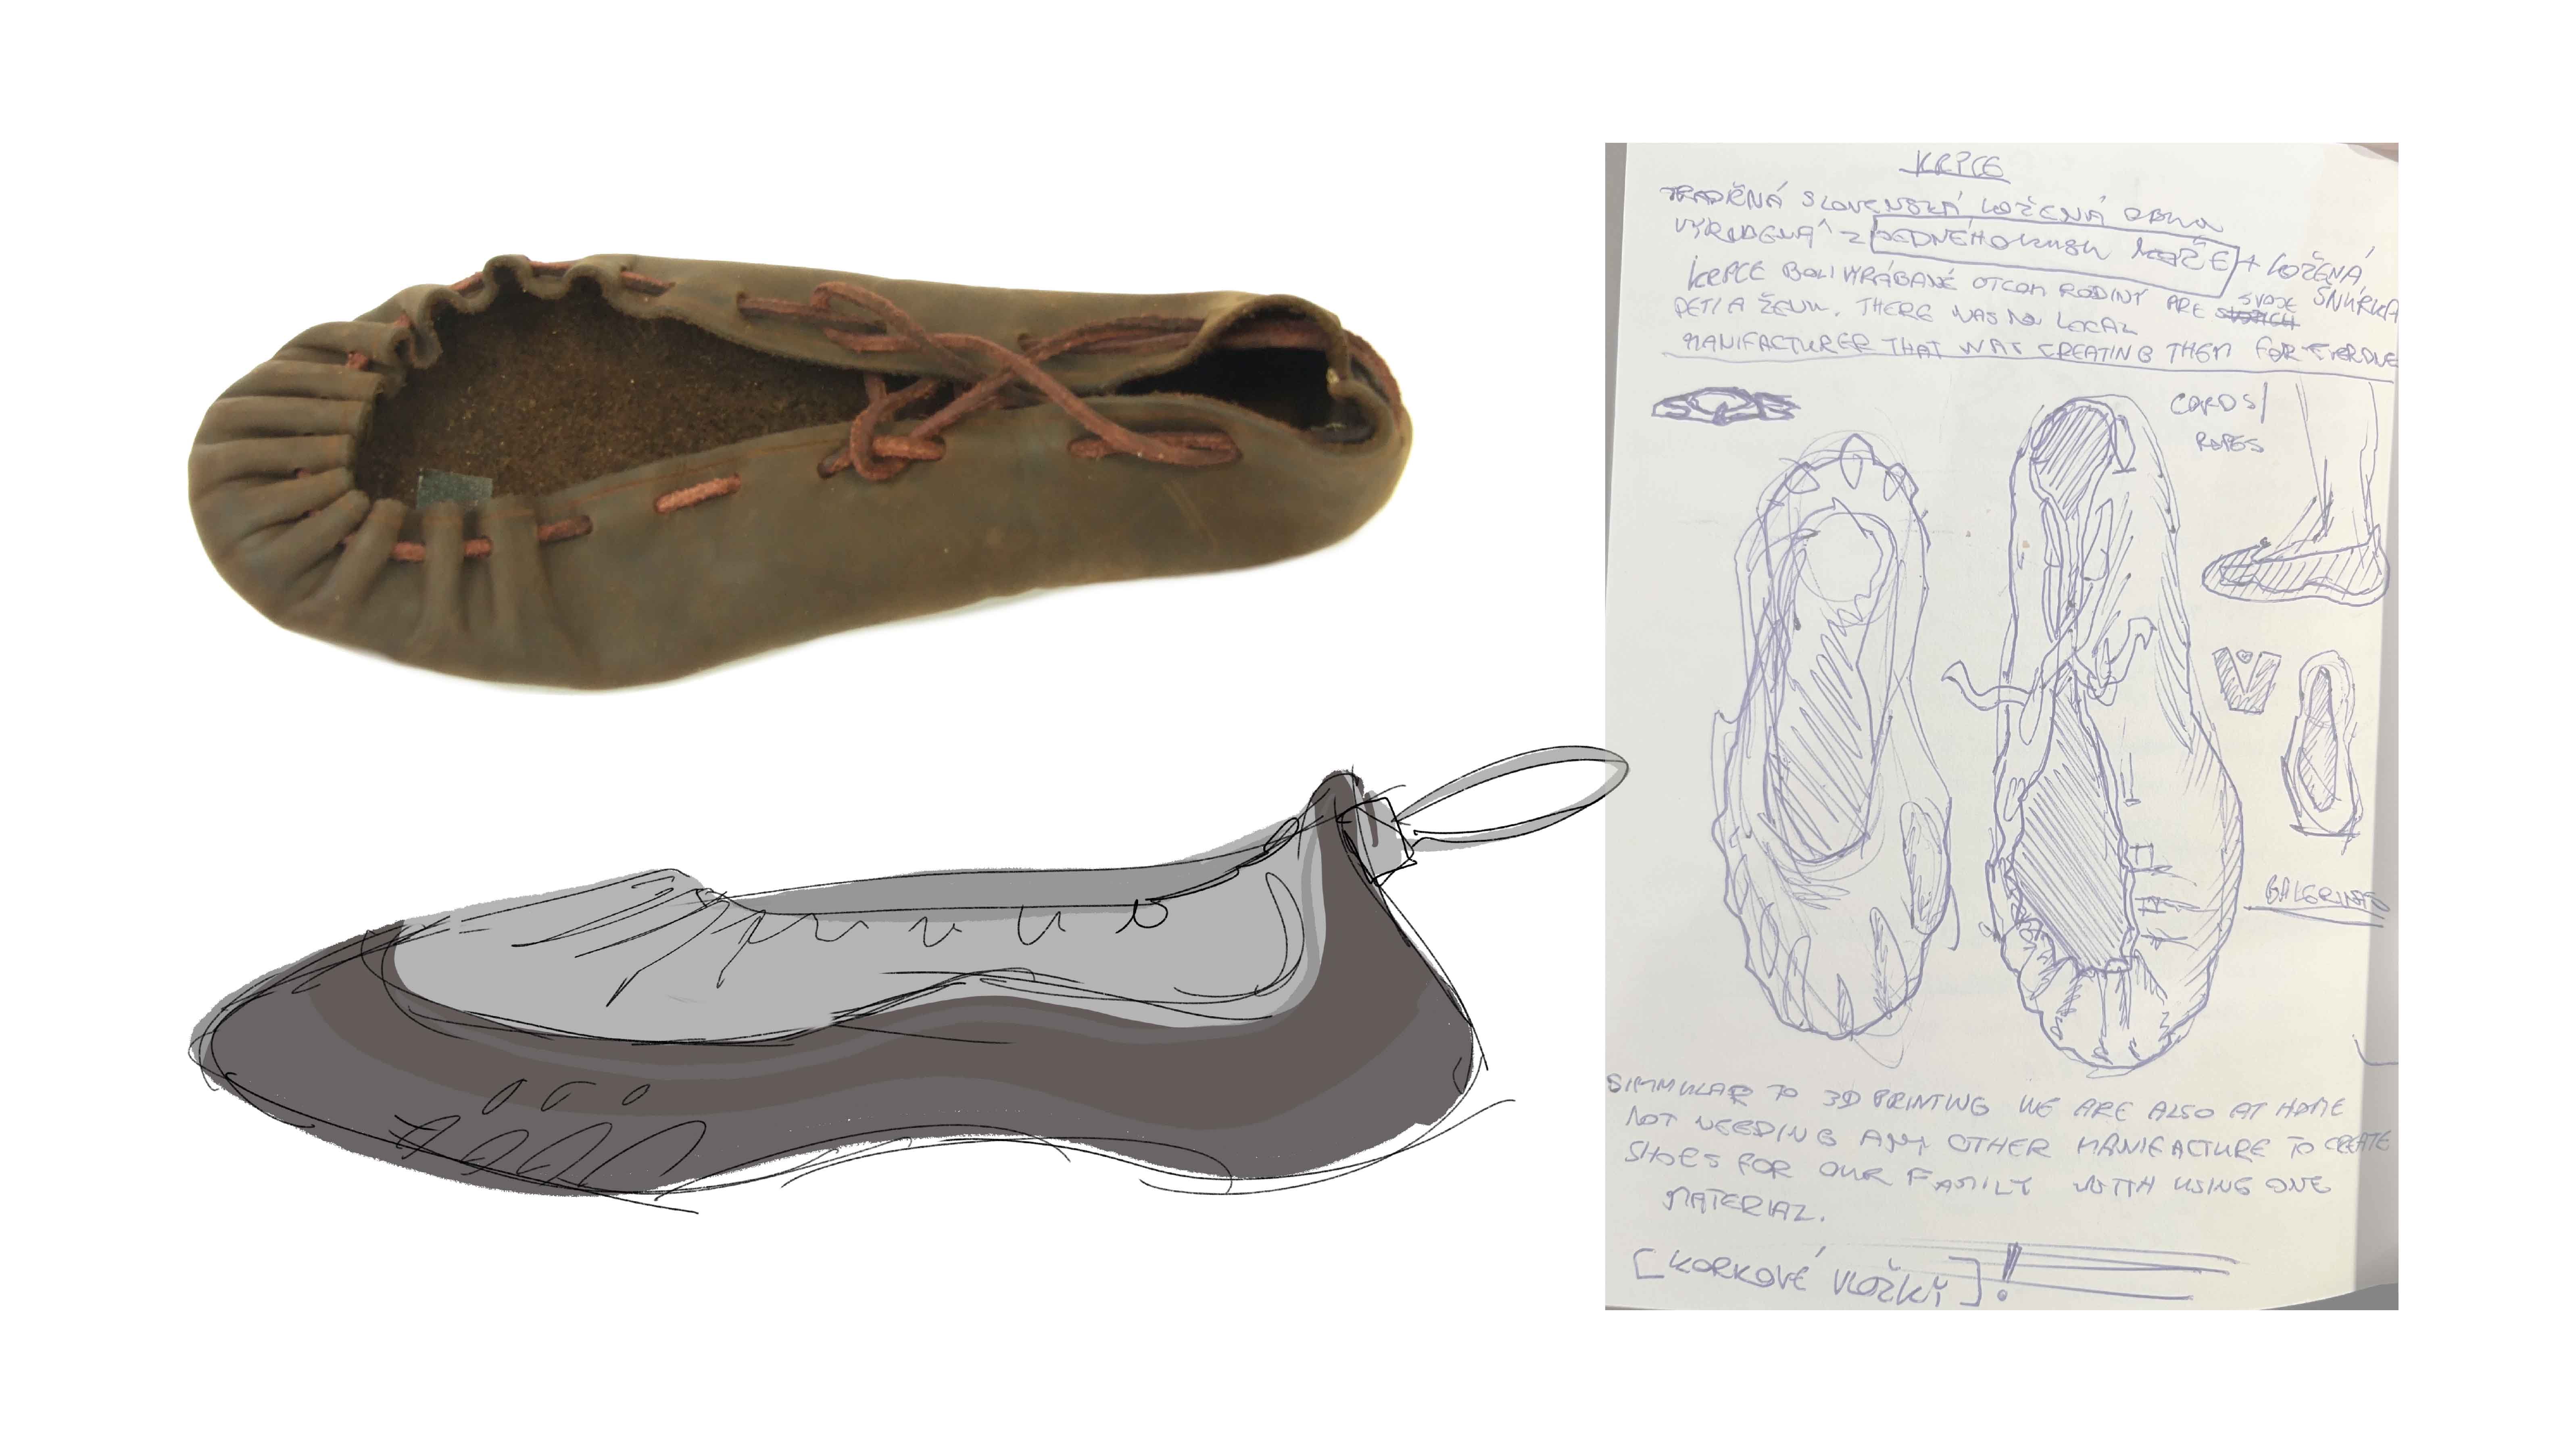 KRPCE
TRADIČNÁ SLOVENSKÁ KOŽENÁ OBUV
VYROBENÁ Z JEDNÉHO KUSU KOŽE + KOŽENÁ
ŠNÚRKA
KRPCE BOLI VYRÁBANÉ OTCOM RODINY PRE SVOJE
DETI A ŽENU. THERE WAS NO LOCAL
MANIFACTURER THAT WAS CREATING THEM FOR EVERONE
CORDS/
ROPES
BALERINAS
SIMMULAR TO 3D PRINTING WE ARE ALSO AT HOME
NOT NEEDING ANY OTHER MANIFACTURE TO CREATE
SHOES FOR OUR FAMILY WITH USING ONE
MATERIAL.
[KORKOVÉ VLOŽKY]!